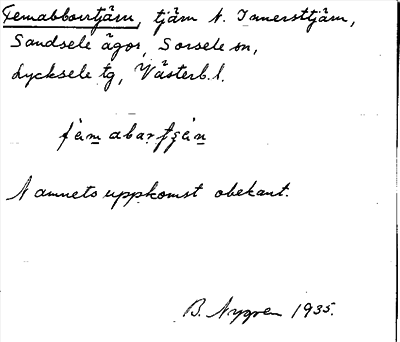 Femabborrtjärn, tjärn N. Innersttjärn,
Sandsele ägor, Sorsele sn,
Lycksele tg, Västerb. l.
fèmabartjén
Namnets uppkomst obekant.
B. Nygren 1935.